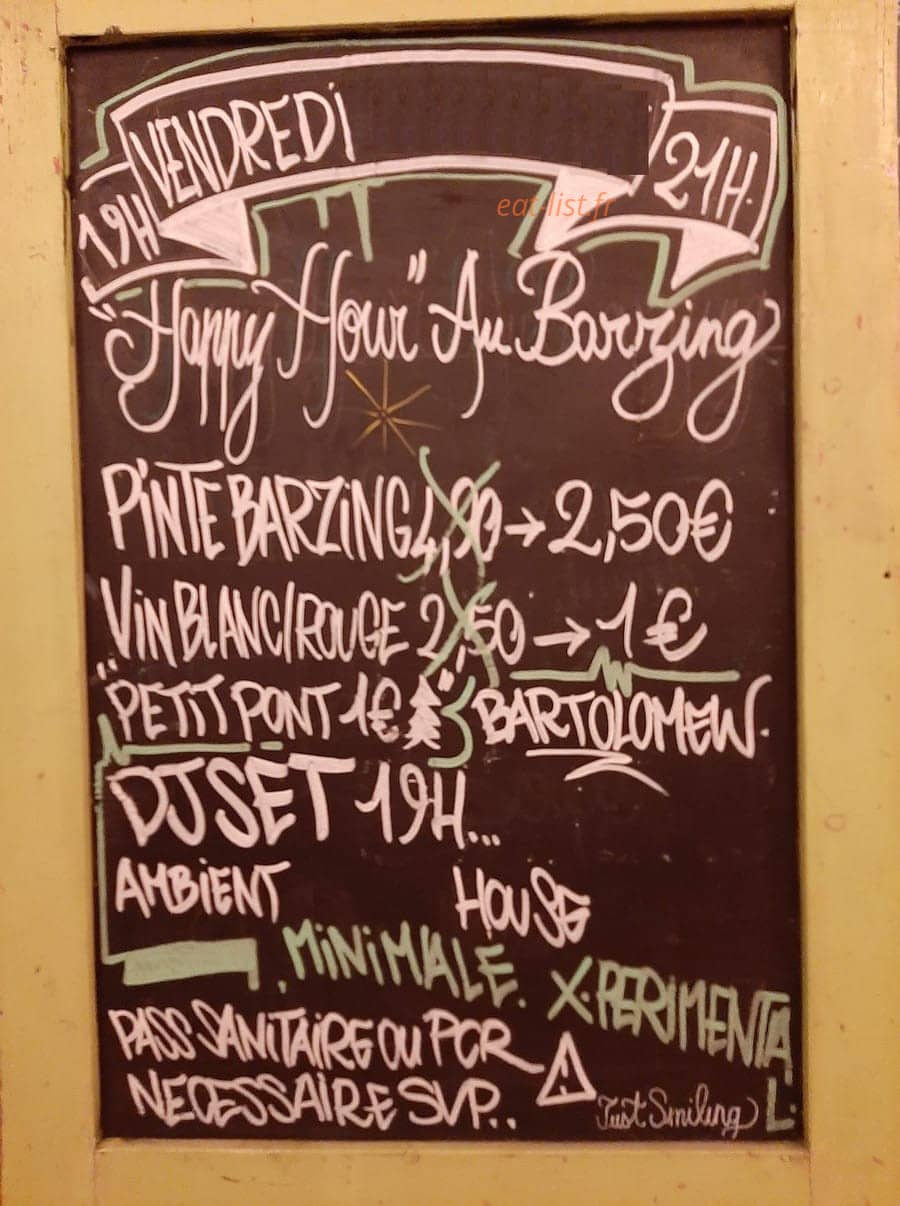 VENDREDi
19H
21H.
eat-list.fr
"Happy Hour" Au Barzing
PiNTE BARZiNG 4,90 → 2,50€
ViN BLANC/ROUGE 2,50 → 1€
"PETiT PONT 1€" BARTOLOMEW.
DJ SET 19H...
AMBiENT HOUSE
. MiNiMALE. X.PERIMENTAL.
PASS SANiTAiRE OU PCR
NECESSAiRE SVP..
Just Smiling